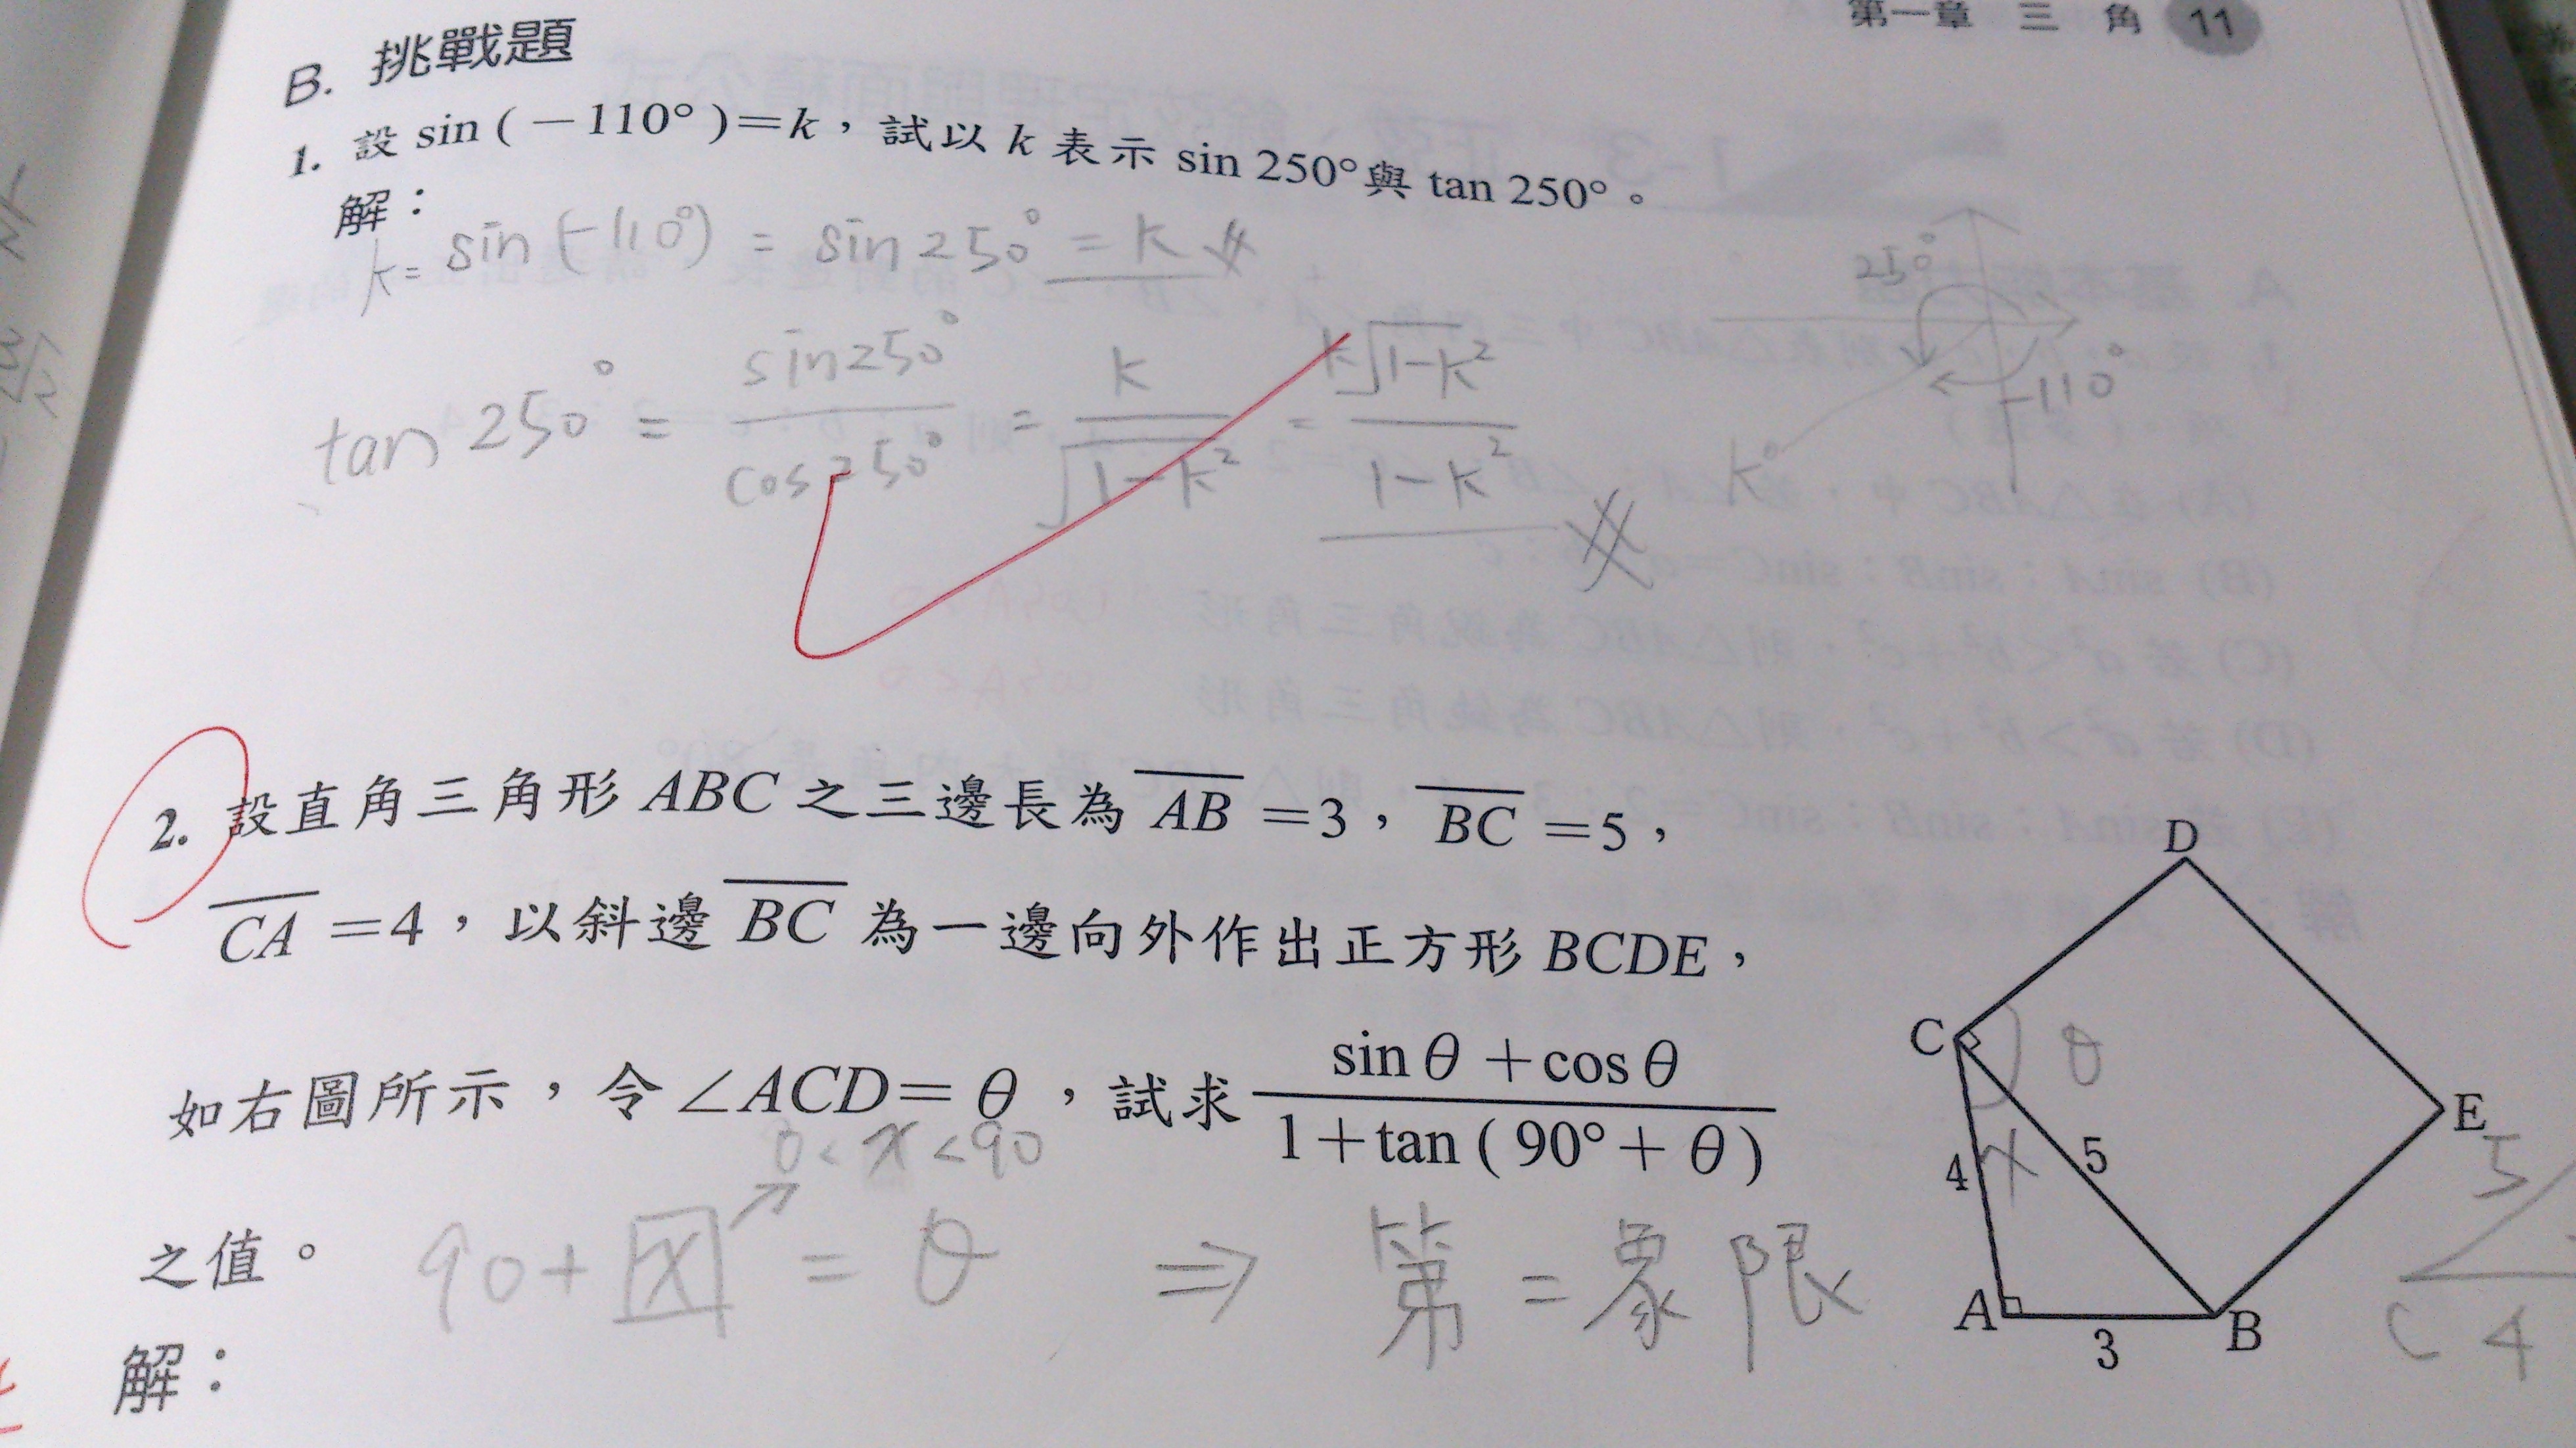 第一章 三 角 11
B. 挑戰題
1. 設 sin (−110°)=k，試以 k 表示 sin 250°與 tan 250°。
解：
k= sin(-110°) = sin250° = k
tan 250° = sin250° / cos250° = k / √1-k² = k√1-k² / 1-k²
250°
-110°
2. 設直角三角形 ABC 之三邊長為 AB =3，BC =5，
CA =4，以斜邊 BC 為一邊向外作出正方形 BCDE，
如右圖所示，令∠ACD= θ，試求 sin θ +cos θ / 1+tan ( 90°+ θ )
0< x <90
之值。 90+ x = θ ⇒ 第二象限
解：
D
C θ
E
4 x 5
A 3 B
5
C 4